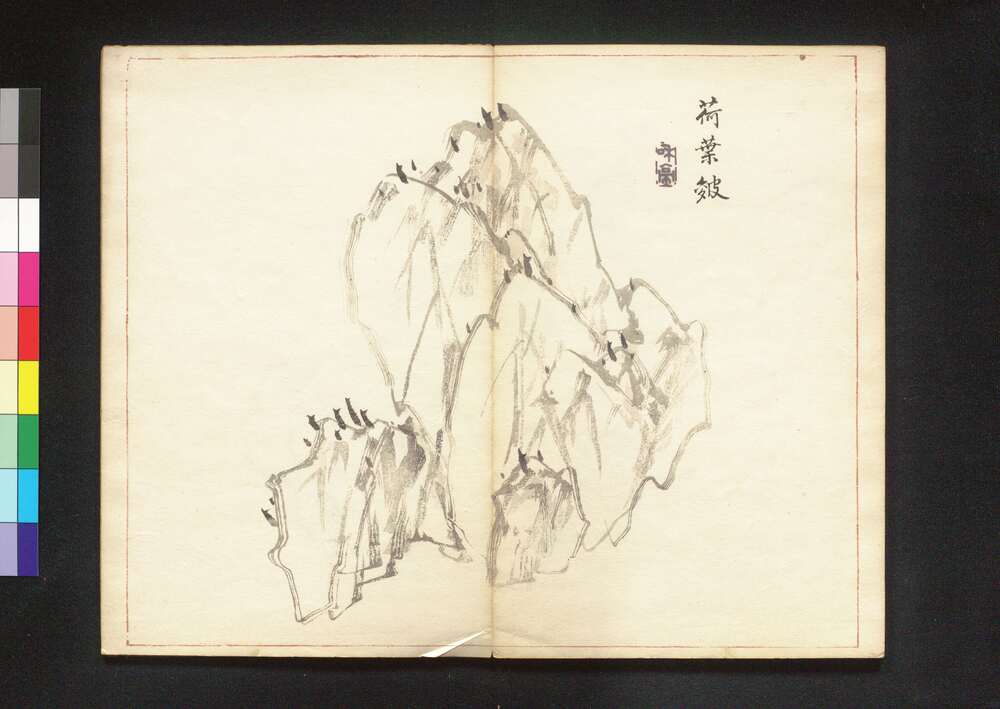 荷葉皴